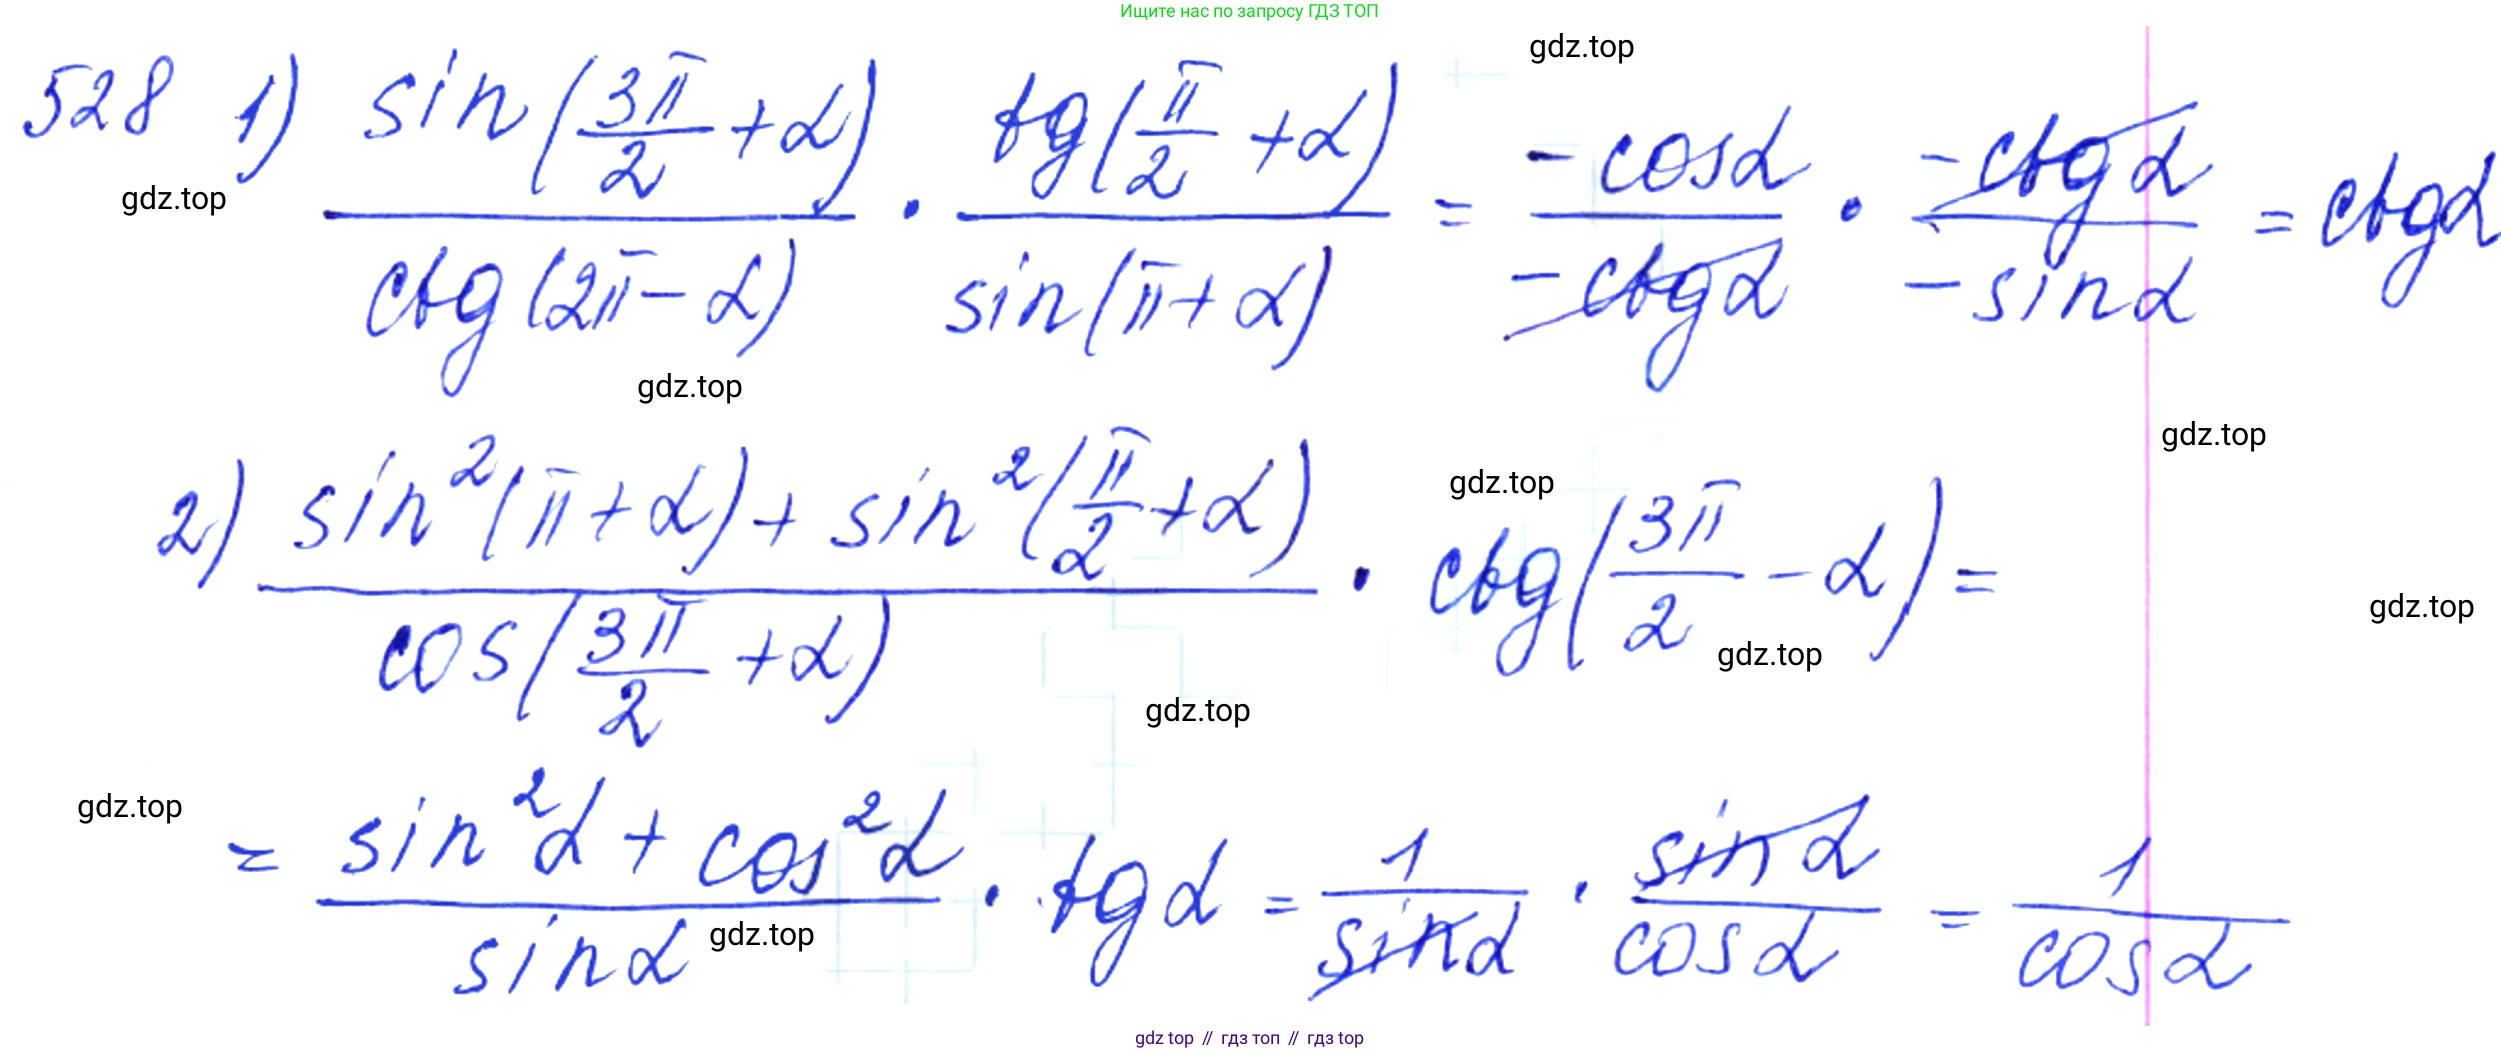 Ищите нас по запросу ГДЗ ТОП
gdz.top
528 1) sin(3π/2 + α) / ctg(2π − α) · tg(π/2 + α) / sin(π + α) = −cosα / −ctgα · −ctgα / −sinα = ctgα
gdz.top
gdz.top
gdz.top
2) sin²(π + α) + sin²(π/2 + α) / cos(3π/2 + α) · ctg(3π/2 − α) =
gdz.top
gdz.top
gdz.top
gdz.top
gdz.top
= sin²α + cos²α / sinα · tgα = 1 / sinα · sinα / cosα = 1 / cosα
gdz.top
gdz top // гдз топ // гдз top